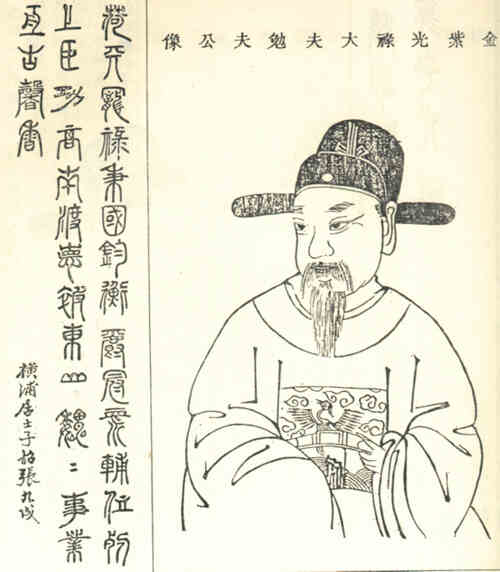 金紫光祿大夫勉夫公像
荷天寵祿秉國鈞衡爵輔位列
上臣功高南渡東山巍〻事業
亘古馨香
橫浦居士子韶張九成